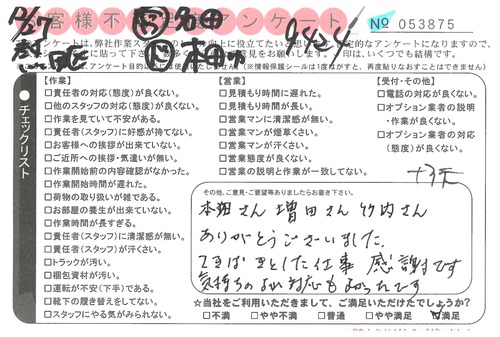 お客様不満足アンケート
No 053875
【作業】
□責任者の対応(態度)が良くない。
□他のスタッフの対応(態度)が良くない。
□作業を見ていて不安がある。
□責任者(スタッフ)に好感が持てない。
□お客様への挨拶が出来ていない。
□ご近所への挨拶・気遣いが無い。
□作業開始前の内容確認がなかった。
□作業開始時間が遅れた。
□荷物の取り扱いが雑である。
□お部屋の養生が出来ていない。
□作業時間が長すぎる。
□責任者(スタッフ)に清潔感が無い。
□責任者(スタッフ)が汗くさい。
□トラックが汚い。
□梱包資材が汚い。
□運転が安(下手)である。
□靴下の履き替えをしてない。
□スタッフにやる気がみられない。
チェックリスト
【営業】
□見積もり時間に遅れた。
□見積もり時間が長い。
□営業マンに清潔感が無い。
□営業マンが煙草くさい。
□営業マンが汗くさい。
□営業態度が良くない。
□営業の説明と作業が一致してない。
【受付・その他】
□電話の対応が良くない。
□オプション業者の説明
・作業が良くない。
□オプション業者の対応
(態度)が良くない。
その他、ご意見・ご要望等ありましたらお書き下さい。
本畑さん 増田さん 竹内さん
ありがとうございました。
てきぱきとした仕事 感謝です
気持ちのよい対応も
☆当社をご利用いただきまして、ご満足いただけたでしょうか?
□不満 □やや不満 □普通 □やや満足 □満足